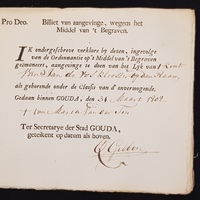 Pro Deo. Billiet van aangevinge, wegens het
Middel van 't Begraven.
IK ondergeschreve verklare by dezen, ingevolge
van de Ordonnantie op 't Middel van 't Begraven
geëmaneert, aangevinge te doen van het Lyk van 't Kint
van Jan de op den
als gehorende onder de Classis van d' onvermogende.
Gedaan binnen GOUDA, den 31 Maart 1802.
van Maria van der
Ter Secretarye der Stad GOUDA,
geteikent op datum als boven.